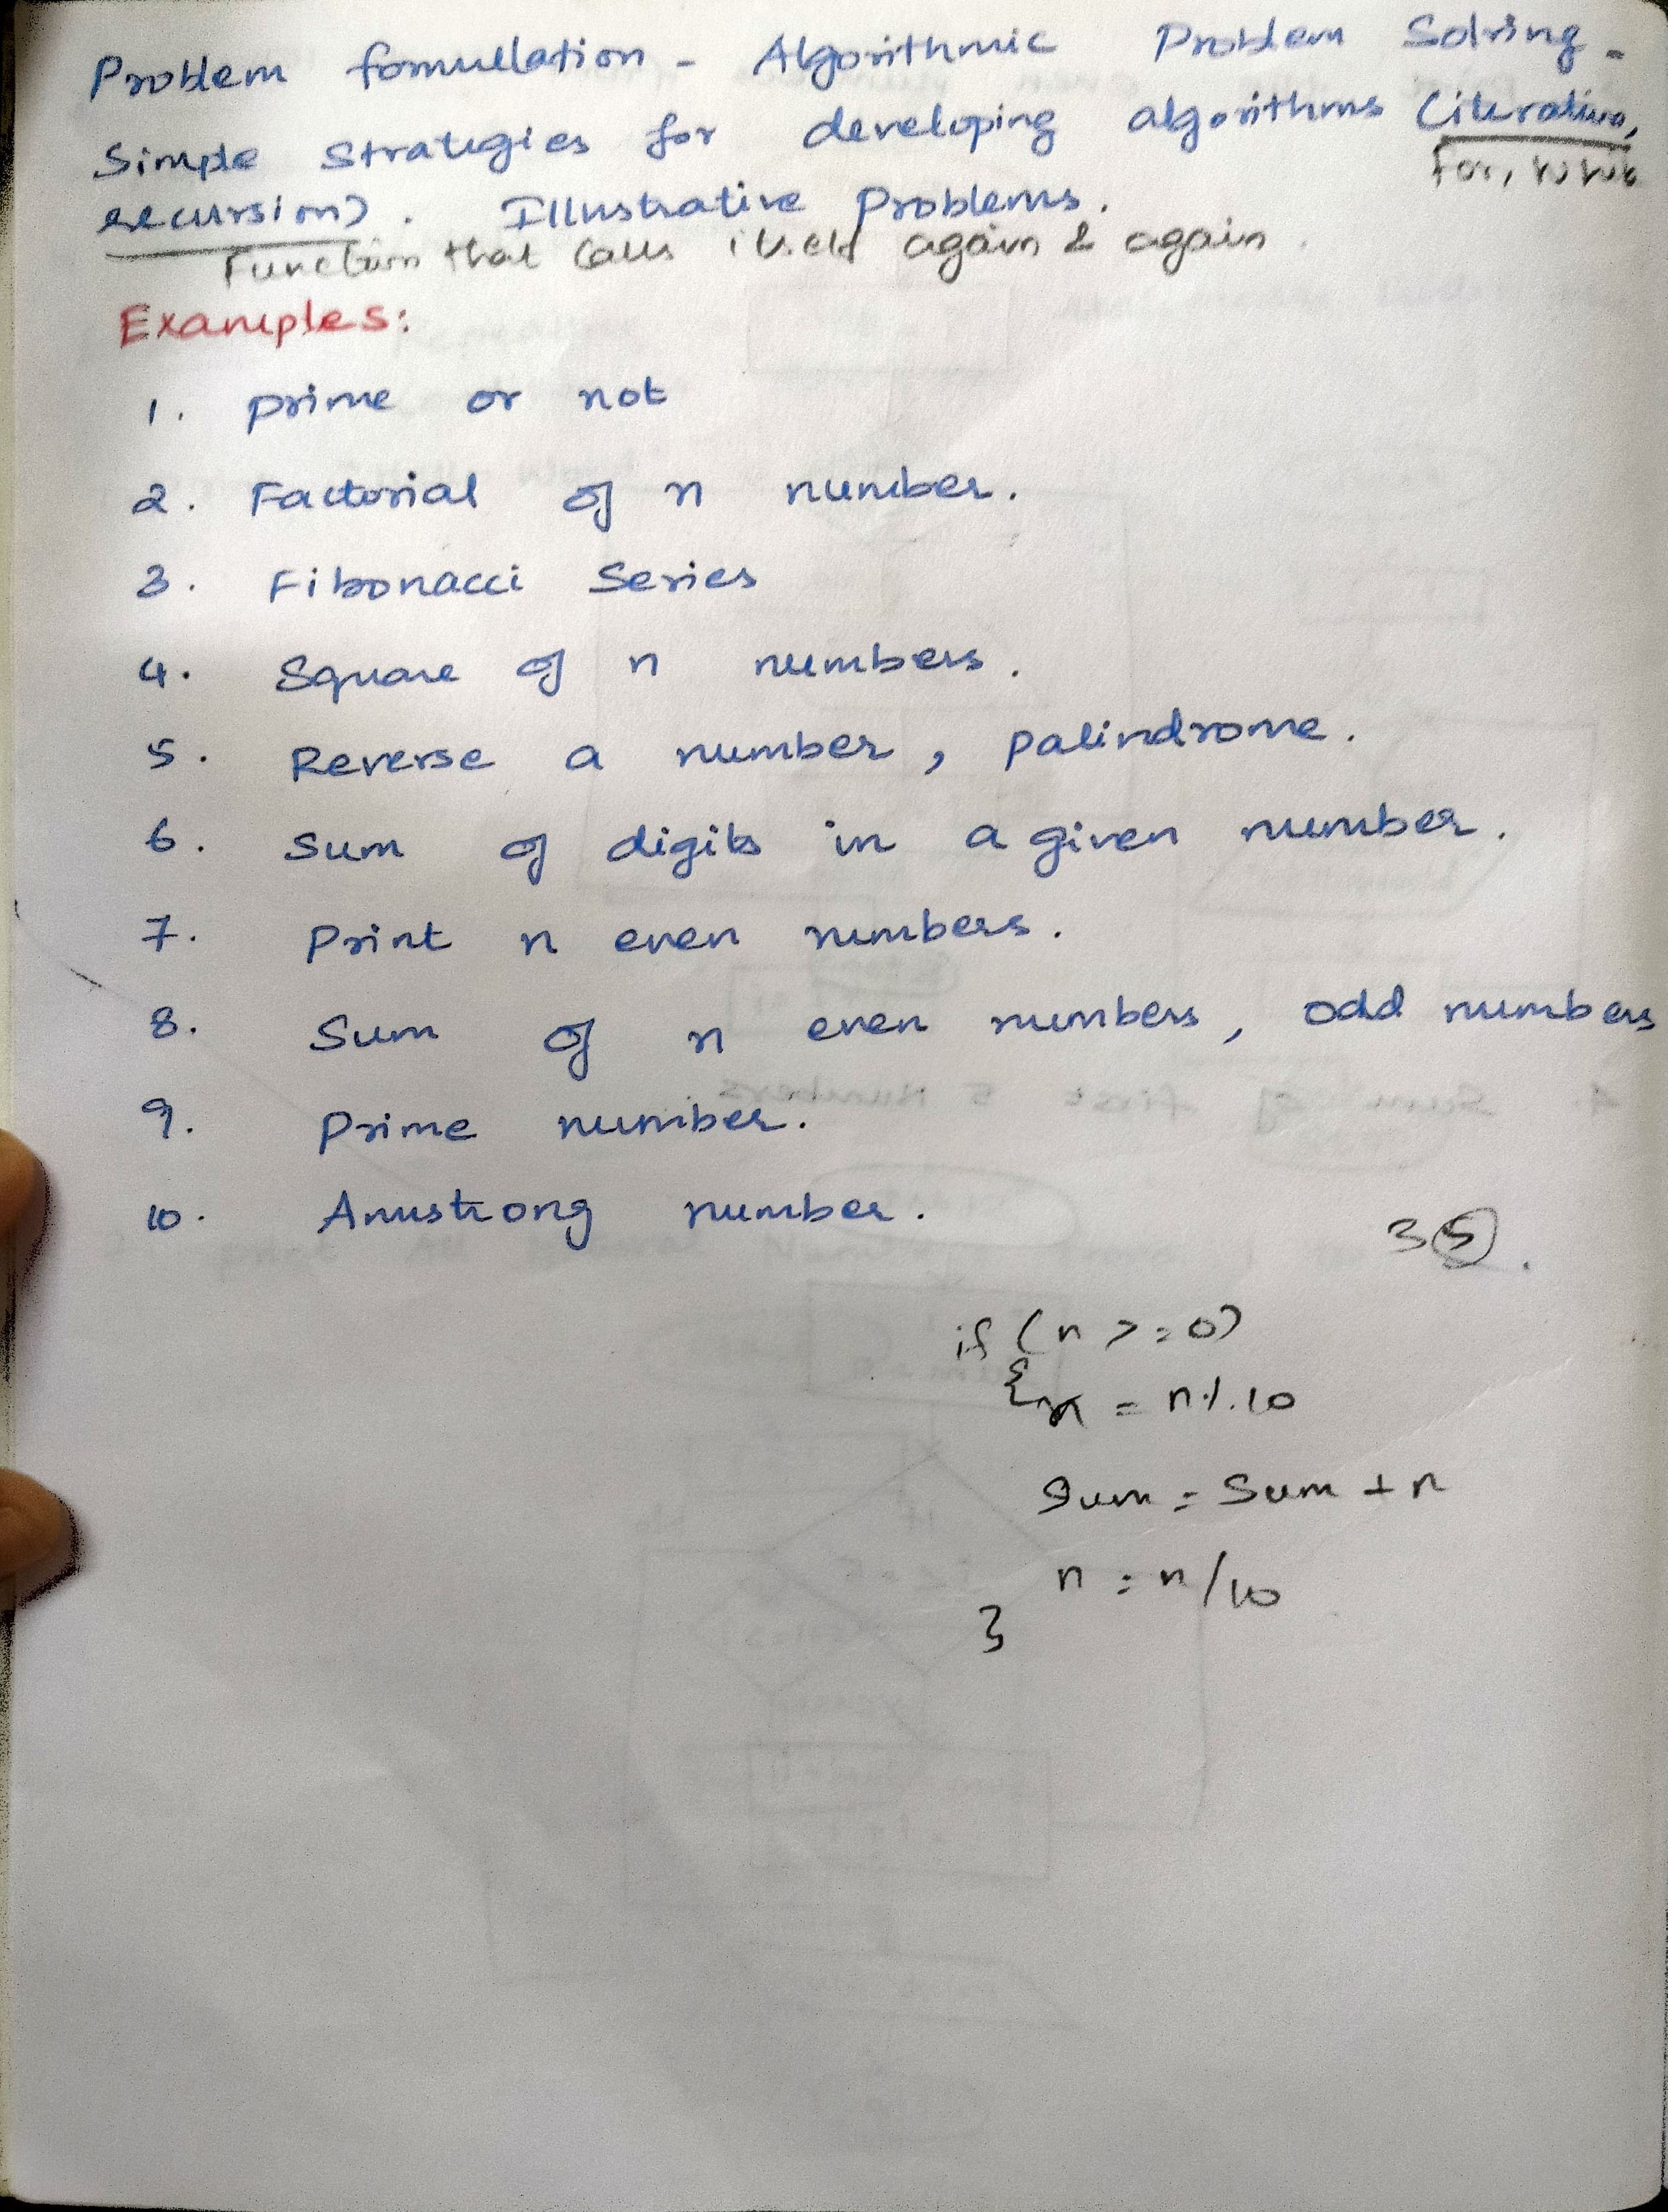 Problem fomullation - Algorithmic Problem Solving -
Simple strategies for developing algorithms (iterative,
For, while
recursion). Illustrative Problems.
Function that calls itself again & again.
Examples:
1. prime or not
2. Factorial of n number.
3. Fibonacci Series
4. Square of n numbers.
5. Reverse a number, palindrome.
6. Sum of digits in a given number.
7. Print n even numbers.
8. Sum of n even numbers, odd numbers
9. Prime number.
10. Armstrong number.
35.
if (n >= 0)
{ = n%10
Sum = Sum + n
n = n/10
}